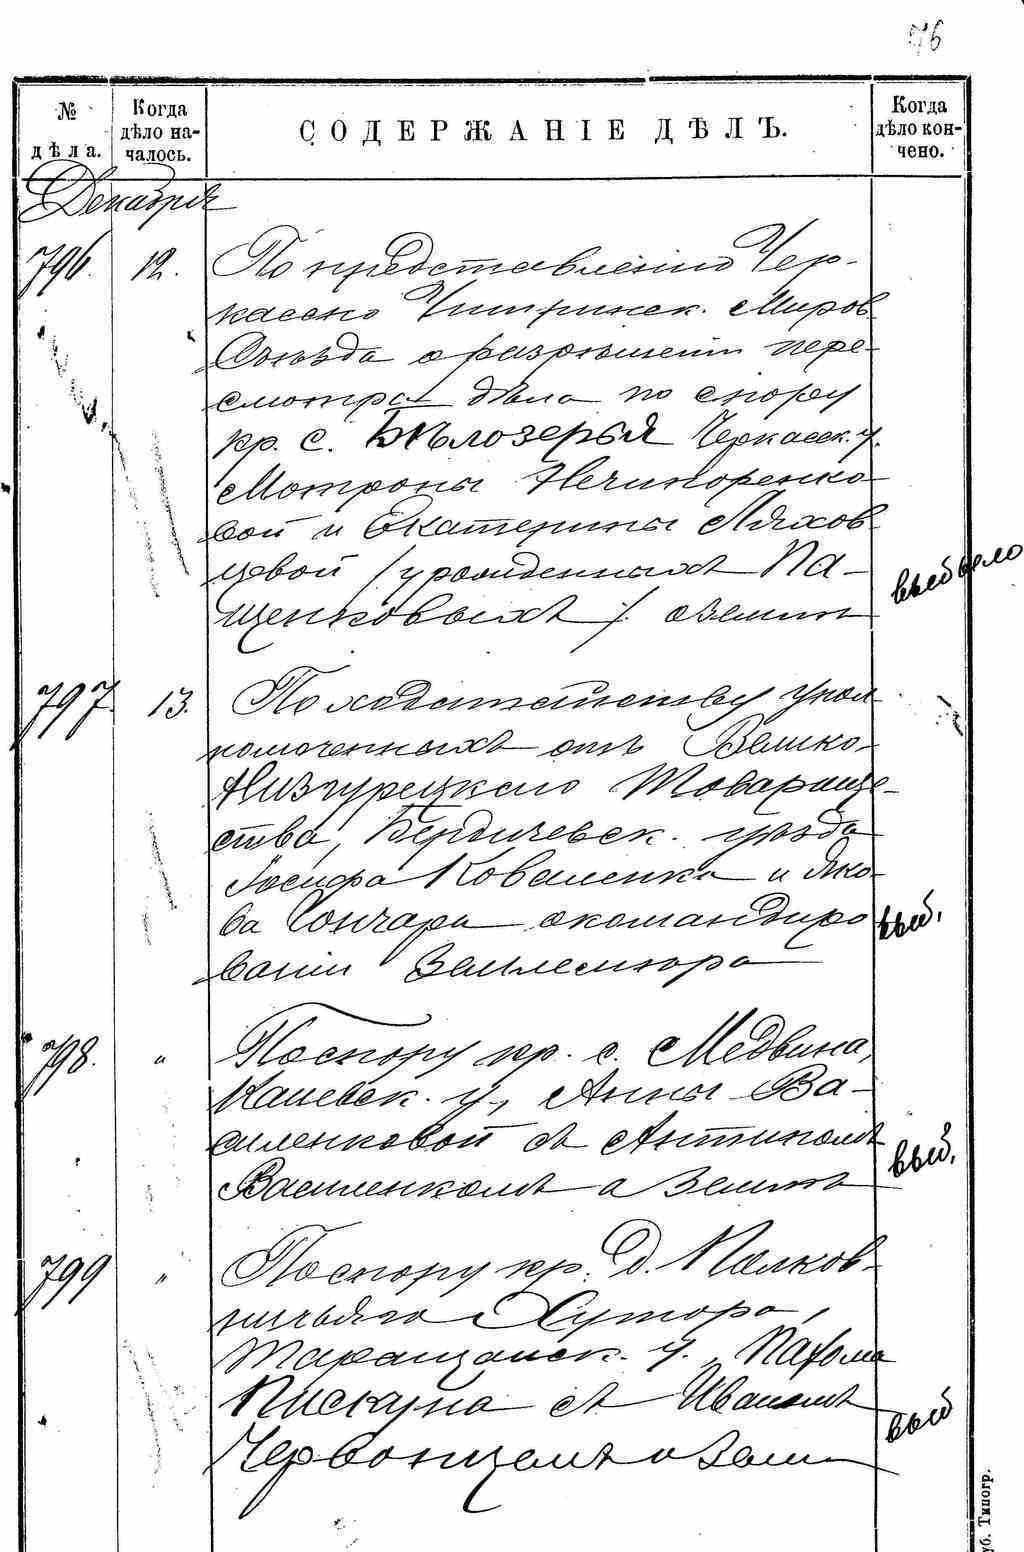 76
№ дѣла.
Когда дѣло началось.
СОДЕРЖАНІЕ ДѢЛЪ.
Когда дѣло кончено.
Декабря
796. 12. По представленію Чер-
касско Чигиринск. Миров.
Съѣзда о разрѣшеніи пере-
смотра дѣла по спору
кр. с. Бѣлозерья Черкасск. у.
Мотроны Нечипоренко-
вой и Екатерины Ляхов-
цевой /урожденныхъ Па-
щенковыхъ/. о землѣ
выбыло
797. 13. По ходатайству упол-
номоченныхъ отъ Велико-
Низгурецкаго Товарище-
ства, Бердичевск. уѣзда
Іосифа Коваленка и Яко-
ва Гончара о командиро
ваніи Землемѣра
выб.
798. " По спору кр. с. Медвина,
Каневск. у., Анны Ва-
силенковой съ Антипомъ
Василенкомъ о землѣ
выб.
799 " По спору кр. д. Полков-
ничьяго Хутора,
Таращанск. у. Пахома
Пискуна съ Иваномъ
Червонцемъ о земл
выб
уб. Типогр.